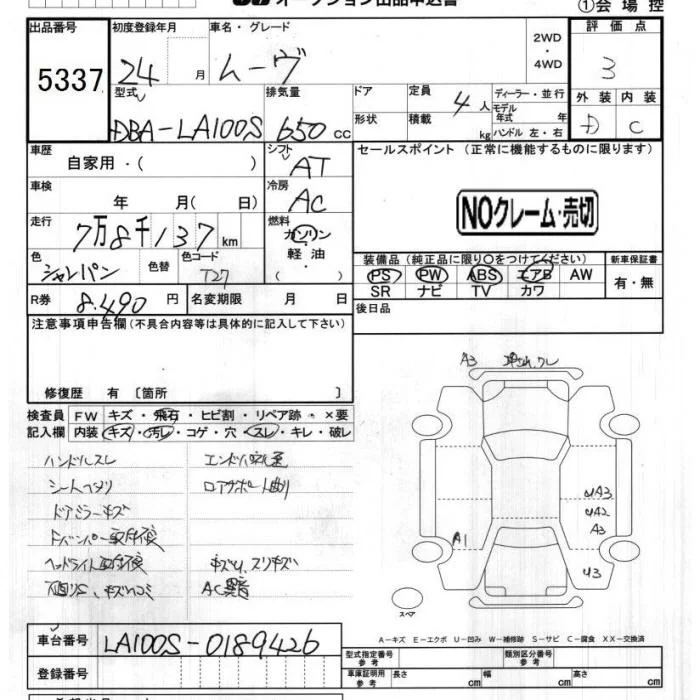 オークション出品申込書 ①会場控
出品番号 初度登録年月 車名・グレード 2WD ・ 4WD 評価点
5337 24 月 ムーヴ 3
型式 排気量 ドア 定員 4人 ディーラー・並行 外装 内装
モデル年式 年
DBA-LA100S 650cc 形状 積載 kg ハンドル 左・右 D C
車歴 自家用・( ) シフト AT セールスポイント (正常に機能するものに限ります)
車検 年 月( 日) 冷房 AC NOクレーム・売切
走行 7万8千137km 燃料 ガソリン
軽油・
( )
色 シャンパン 色替 色コード T27
装備品 (純正品に限り○をつけてください) 新車保証書
PS PW ABS エアB AW 有・無
SR ナビ TV カワ
R券 8,490円 名変期限 月 日 後日品
注意事項申告欄(不具合内容等は具体的に記入して下さい)
修復歴 有 〔箇所 〕
検査員 FW キズ・飛石・ヒビ割・リペア跡・×要
記入欄 内装 キズ・汚レ・コゲ・穴・スレ・キレ・破レ
ハンドルスレ
シートヘタリ ロアサポート曲り
ドアミラーキズ
キズ凹、スリキズ
AC異音
A3
A1
U3
A3
スペア
A-キズ E-エクボ U-凹み W-補修跡 S-サビ C-腐食 XX-交換済
車台番号 LA100S-0189426
型式指定番号 参考 類別区分番号 参考
登録番号 車庫証明用 参考 長さ cm 幅 cm 高さ cm